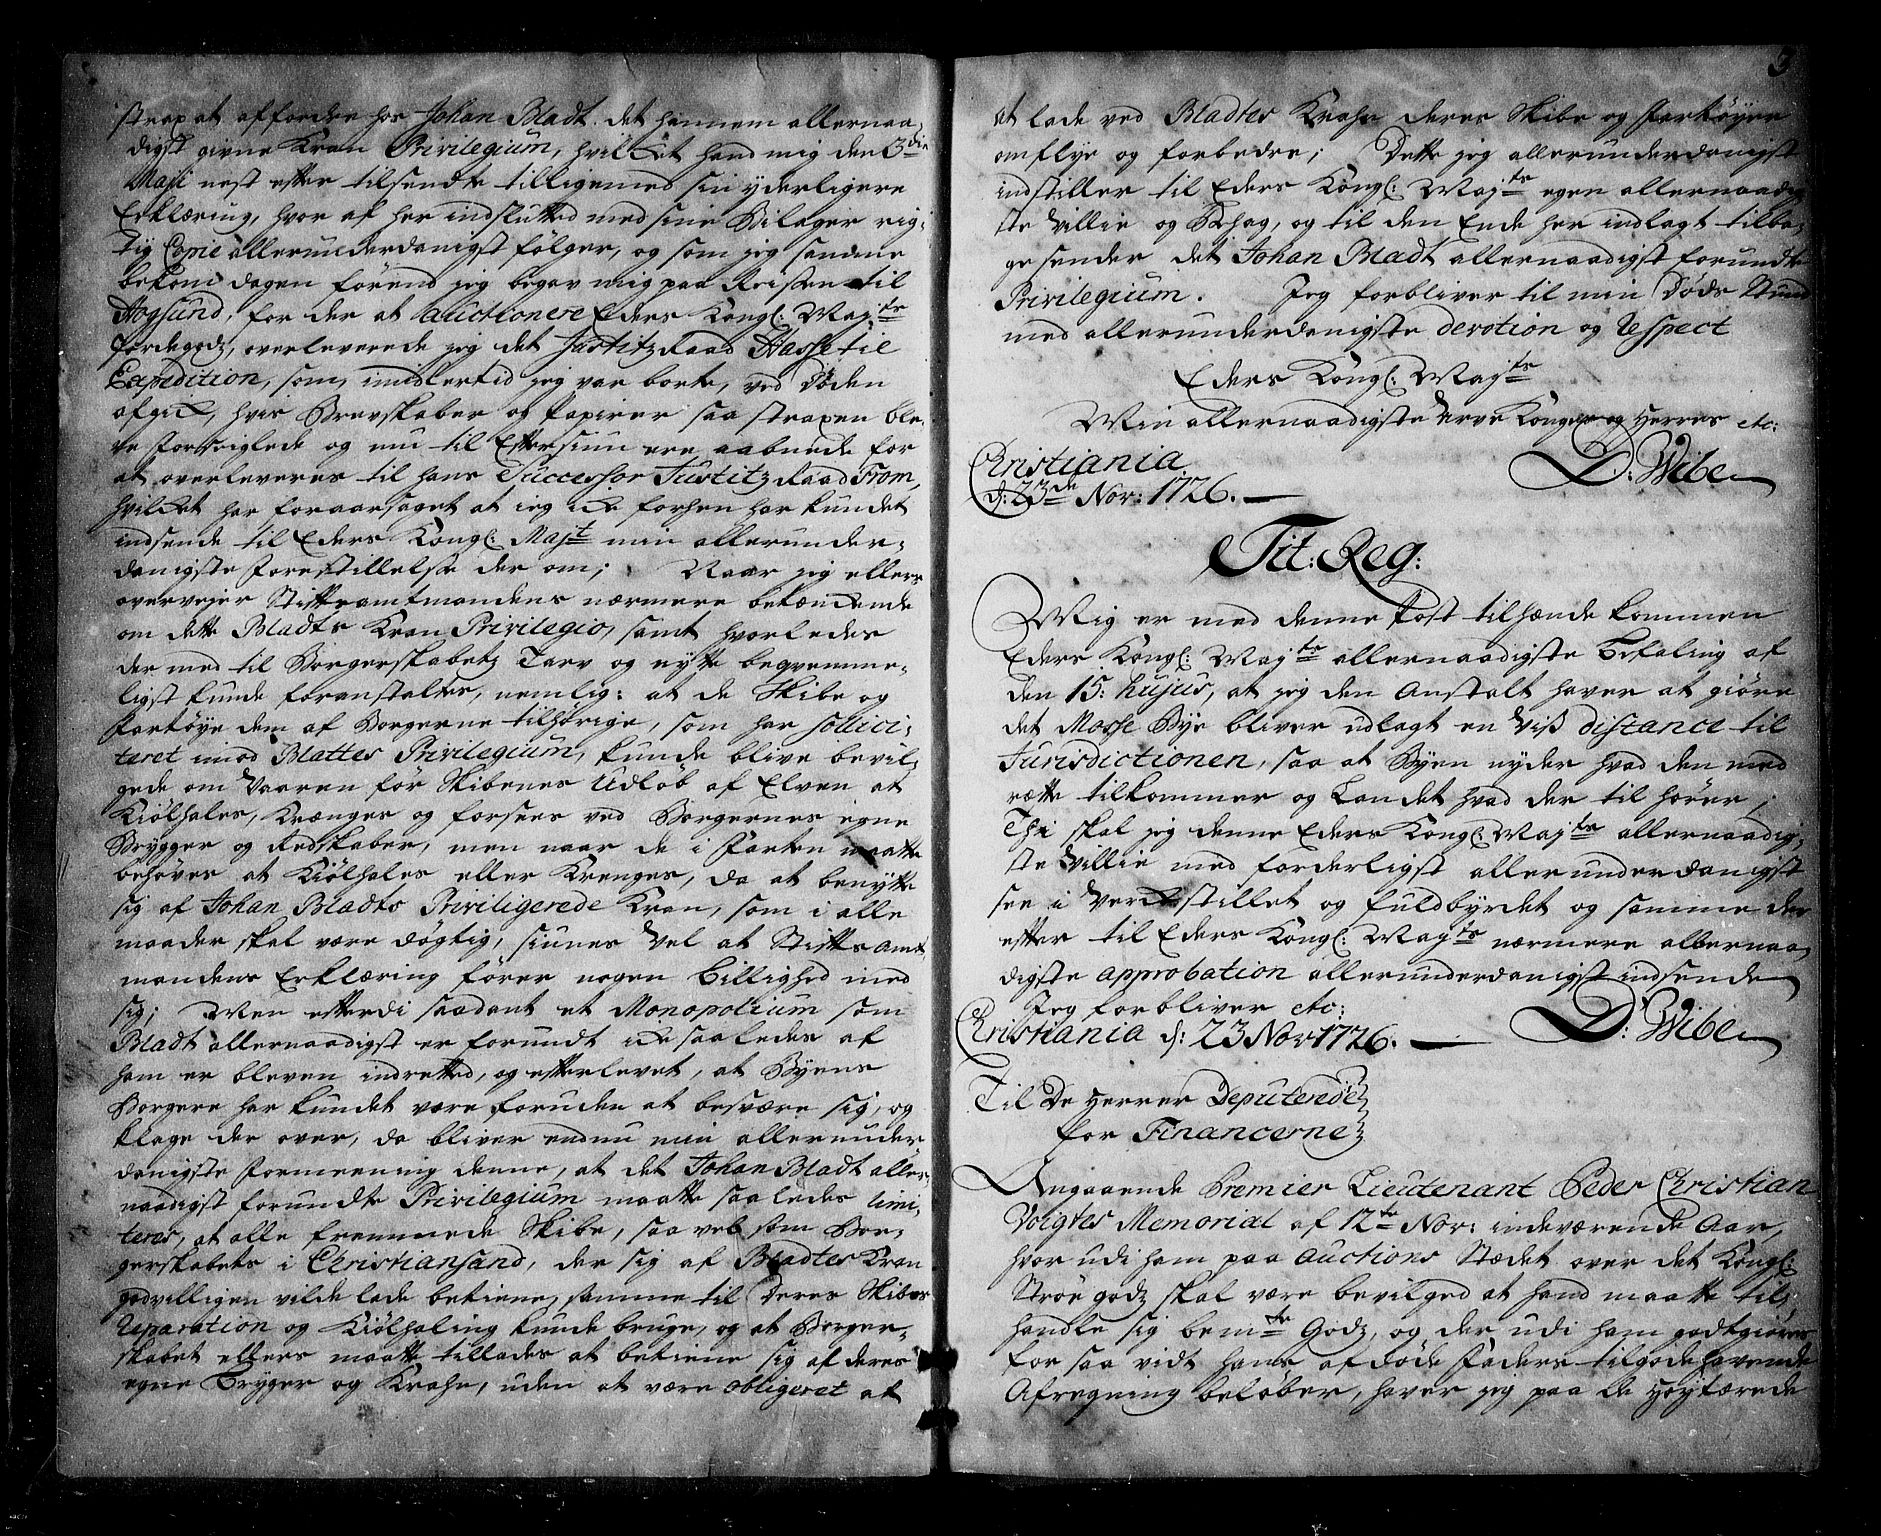 strax at affordre hos Johan Bladt det hannem allernaa¬
digst givne Kran Privilegium, hvilket hand mig den 3die
Maji nest efter tilsendte tilligemed sin yderligere
Erklæring, hvor af her indslutted med sine Bilager rig¬
tig Copie allerunderdanigst følger, og som jeg samme
bekom dagen førend jeg begav mig paa Reisen til
Hogsund, for der at auctionere Eders Kongl: Mayts
Jordegodz, overleverede jeg det Justitz Raad Hasse til
Expedition, som, imidlertid jeg var borte, ved Døden
afgick, hvis Brevskaber og Papirer saa straxen ble¬
ve forseiglede og nu til Eftersiun ere aabnede for
at overleveres til hans Successor Justitz Raad From,
hvilket har foraarsaget at jeg icke forhen har kundet
indsende til Eders Kongl: Mayt min allerunder¬
danigste Forestillelse der om; Naar jeg ellers
overvejer Stiftsamtmandens nærmere betænckende
om dette Bladts Kran Privilegio, samt hvorledes
der med til Borgerskabetz Tarv og nytte beqvemme¬
ligst kunde foranstaltes, nemlig: at de Skibe og
Fartøye dem af Borgerne tilhørige, som har sollici¬
teret imod Blattes Privilegium, kunde blive bevil¬
gede om Vaaren før Skibenes Udløb af Elven at
Kiølhales, Krænges og forsees ved Borgernes egne
Brygger og Redskaber, men naar de i Farten maatte
behøves at Kiølhales eller Krenges, da at benytte
sig af Johan Bladts Priviligerede Kran, som i alle
maader skal være døgtig, siunes vel at Stifts Amt
mandens Erklæring fører nogen Billighed med
sig; Men efterdi saadant et Monopolium som
Bladt allernaadigst er forundt icke saaledes af
ham er bleven indretted, og efterlevet, at Byens
Borgere har kundet være foruden at besvære sig, og
klage der over, da bliver endnu min allerunder
danigste Formeening denne, at det Johan Bladt aller¬
naadigst forundte Privilegium maatte saaledes limi¬
teres, at alle fremmede Skibe, saa vel som Bor¬
gerskabets i Christiansand, der sig af Bladtes Kran
godvilligen vilde lade betiene, samme til Deres Skibes
Reparation og Kiølhaling kunde bruge, og at Borger¬
skabet ellers maatte tillades at betiene sig af deres
egne Brygger og Krahn, uden at være obligeret at
3
at lade ved Bladtes Krahn deres Skibe og Fartøyer
omflye og forbedre; Dette jeg allerunderdanigst
indstiller til Eders Kongl: Mayts egen allernaadig
ste Villie og Behag, og til den Ende her indlagt tilba¬
ge sender det Johan Bladt allernaadigst forundte
Privilegium. Jeg forbliver til min Døds Stund
med allerunderdanigste devotion og Respect
Eders Kongl: Mayts
Min allernaadigste Arve Konges og Herres etc:
Christiania
d: 23de Nov: 1726. D: Wibe
Tit: Reg:
Mig er med denne Post tilhænde kommen
Eders Kongl: Mayts allernaadigste Befaling af
den 15: hujus, at jeg den Anstalt haver at giøre
det Mosse Bye bliver udlagt en Viss distance til
Jurisdictionen, saa at Byen nyder hvad den med
rætte tilkommer og Landet hvad der til hører;
Thi skal jeg denne Eders Kongl: Mayts allernaadig¬
ste Villie med forderligst allerunderdanigst
see i Verckstillet og fuldbyrdet og samme der
efter til Eders Kongl: Mayts nærmere allernaa¬
digste approbation allerunderdanigst indsende
Jeg forbliver etc:
Christiania d: 23 Nov 1726. D: Wibe
Til De Herrer Deputerede
for Financerne
Angaaende Premier Lieutenant Peder Christian
Voigtes Memorial af 12te Nov: indeværende Aar,
hvor udi ham paa Auctions Stædet over det Kongl:
Strøegodz skal være bevilged at hand maatte til¬
handle sig bemte Godz, og der udi ham godtgiøres
for saa vidt hans afdøde Faders tilgodehavende
Afregning beløber, haver jeg paa De Høytærede